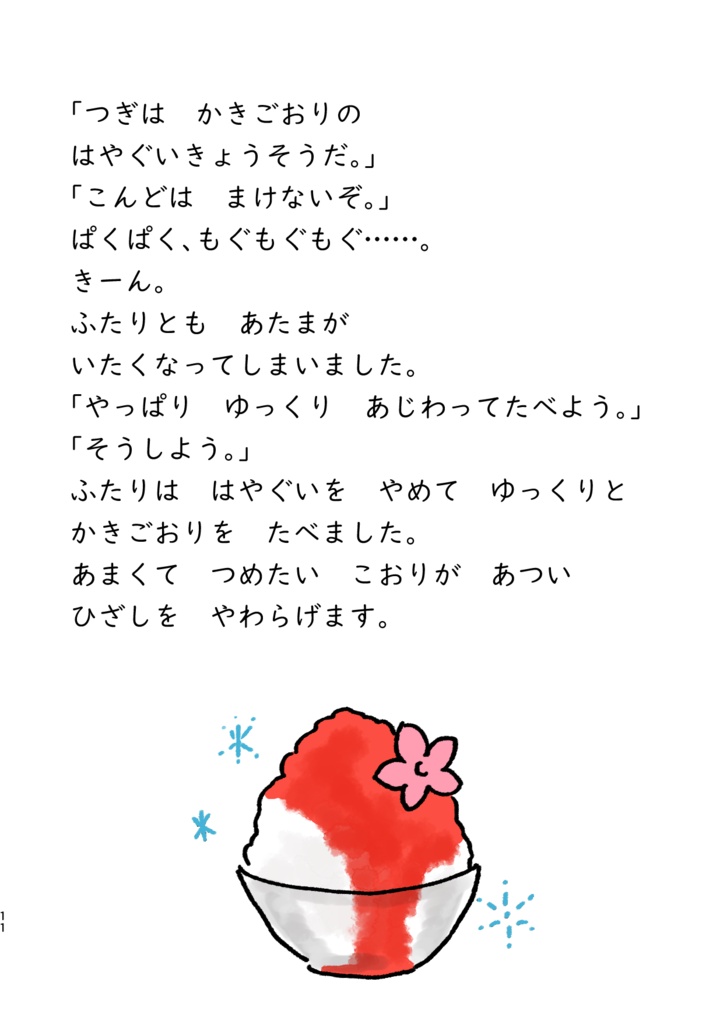 「つぎは　かきごおりの
はやぐいきょうそうだ。」
「こんどは　まけないぞ。」
ぱくぱく、もぐもぐもぐ……。
きーん。
ふたりとも　あたまが
いたくなってしまいました。
「やっぱり　ゆっくり　あじわってたべよう。」
「そうしよう。」
ふたりは　はやぐいを　やめて　ゆっくりと
かきごおりを　たべました。
あまくて　つめたい　こおりが　あつい
ひざしを　やわらげます。
11